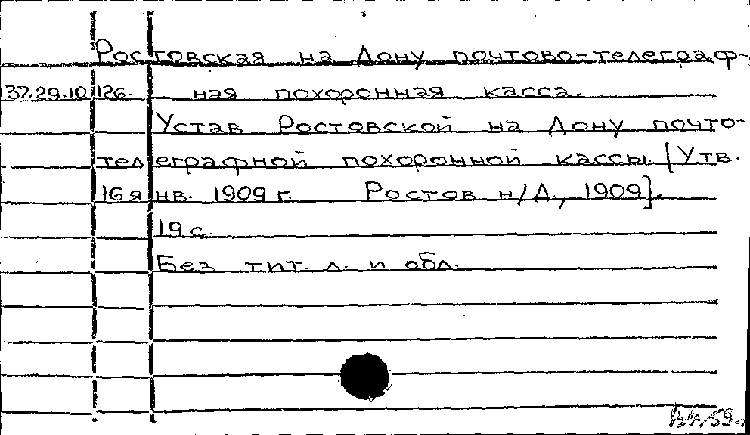 Ростовская на Дону почтово-телеграф-
37.29.10.126. ная похоронная касса.
Устав Ростовской на Дону почто-
телеграфной похоронной кассы. [Утв.
16 янв. 1909 г. Ростов н/Д., 1909].
19 с.
Без тит. л. и обл.